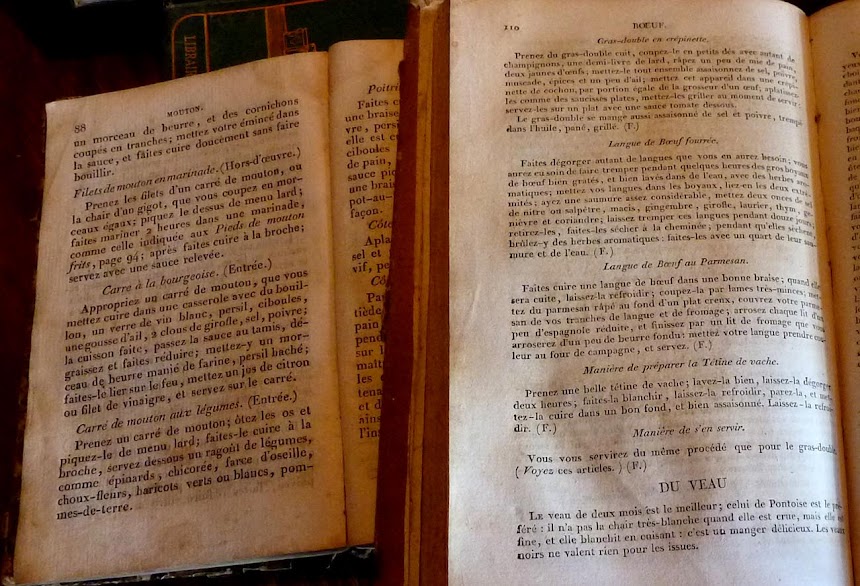 LIBRAI
88
MOUTON.
un morceau de beurre, et des cornichons
coupés en tranches; mettez votre émincé dans
la sauce, et faites cuire doucement sans faire
bouillir.
Filets de mouton en marinade. (Hors-d'œuvre.)
Prenez les filets d'un carré de mouton, ou
la chair d'un gigot, que vous coupez en mor-
ceaux égaux; piquez le dessus de menu lard;
faites mariner 2 heures dans une marinade,
comme celle indiquée aux Pieds de mouton
frits, page 94; après faites cuire à la broche;
servez avec une sauce relevée.
Carre à la bourgeoise. (Entrée.)
Appropriez un carré de mouton, que vous
mettez cuire dans une casserole avec du bouil-
lon, un verre de vin blanc, persil, ciboules,
une gousse d'ail, 2 clous de girofle, sel, poivre;
la cuisson faite, passez la sauce au tamis, dé-
graissez et faites réduire; mettez-y un mor-
ceau de beurre manié de farine, persil haché;
faites-le lier sur le feu, mettez un jus de citron
ou filet de vinaigre, et servez sur le carré.
Carré de mouton aux légumes. (Entrée.)
Prenez un carré de mouton; ôtez les os et
piquez-le de menu lard; faites-le cuire à la
broche, servez dessous un ragoût de légumes,
comme épinards, chicorée, farce d'oseille,
choux-fleurs, haricots verts ou blancs, pom-
mes-de-terre.
Poitri
Faites c
une braise
vre, persi
elle est cu
ciboules
de pain,
sauce piq
une brai
pot-au-
façon.
Côte
Aplat
sel et
vif, pe
Cô
Pa
tiède
pain
pend
sur l
malt
les c
tena
et d
ains
l'ins
110
BOEUF.
Gras-double en crépinette.
Prenez du gras-double cuit, coupez-le en petits dés avec autant de
champignons, une demi-livre de lard, râpez un peu de mie de pain,
deux jaunes d'œufs; mettez-le tout ensemble assaisonnez de sel, poivre,
muscade, épices et un peu d'ail; mettez cet appareil dans une crépi-
nette de cochon, par portion égale de la grosseur d'un œuf; aplatissez-
les comme des saucisses plates, mettez-les griller au moment de servir;
servez-les sur un plat avec une sauce tomate dessous.
Le gras-double se mange aussi assaisonné de sel et poivre, trempé
dans l'huile, pané, grillé. (F.)
Langue de Bœuf fourrée.
Faites dégorger autant de langues que vous en aurez besoin; vous
aurez eu soin de faire tremper pendant quelques heures des gros boyaux
de bœuf bien gratés, et bien lavés dans de l'eau, avec des herbes aro-
matiques; mettez vos langues dans les boyaux, liez-en les deux extré-
mités; ayez une saumure assez considérable, mettez deux onces de sel
de nitre ou salpêtre, macis, gingembre, girofle, laurier, thym, ge-
nièvre et coriandre; laissez tremper ces langues pendant douze jours;
retirez-les, faites-les sécher à la cheminée; pendant qu'elles sèchent,
brûlez-y des herbes aromatiques: faites-les avec un quart de leur sau-
mure et de l'eau. (F.)
Langue de Bœuf au Parmesan.
Faites cuire une langue de bœuf dans une bonne braise; quand elle
sera cuite, laissez-la refroidir; coupez-la par lames très-minces; met-
tez du parmesan râpé au fond d'un plat creux, couvrez votre parme-
san de vos tranches de langue et de fromage; arrosez chaque lit d'un
peu d'espagnole réduite, et finissez par un lit de fromage que vous
arroserez d'un peu de beurre fondu: mettez votre langue prendre cou-
leur au four de campagne, et servez. (F.)
Manière de préparer la Tétine de vache.
Prenez une belle tétine de vache; layez-la bien, laissez-la dégorger
deux heures; faites-la blanchir, laissez-la refroidir, parez-la, et met-
tez-la cuire dans un bon fond, et bien assaisonné. Laissez-la refroi-
dir. (F.)
Manière de s'en servir.
Vous vous servirez du même procédé que pour le gras-double.
(Voyez ces articles.) (F.)
DU VEAU
LE veau de deux mois est le meilleur; celui de Pontoise est le pré-
féré: il n'a pas la chair très-blanche quand elle est crue, mais elle est
fine, et elle blanchit en cuisant: c'est un manger délicieux. Les veaux
noirs ne valent rien pour les issues.